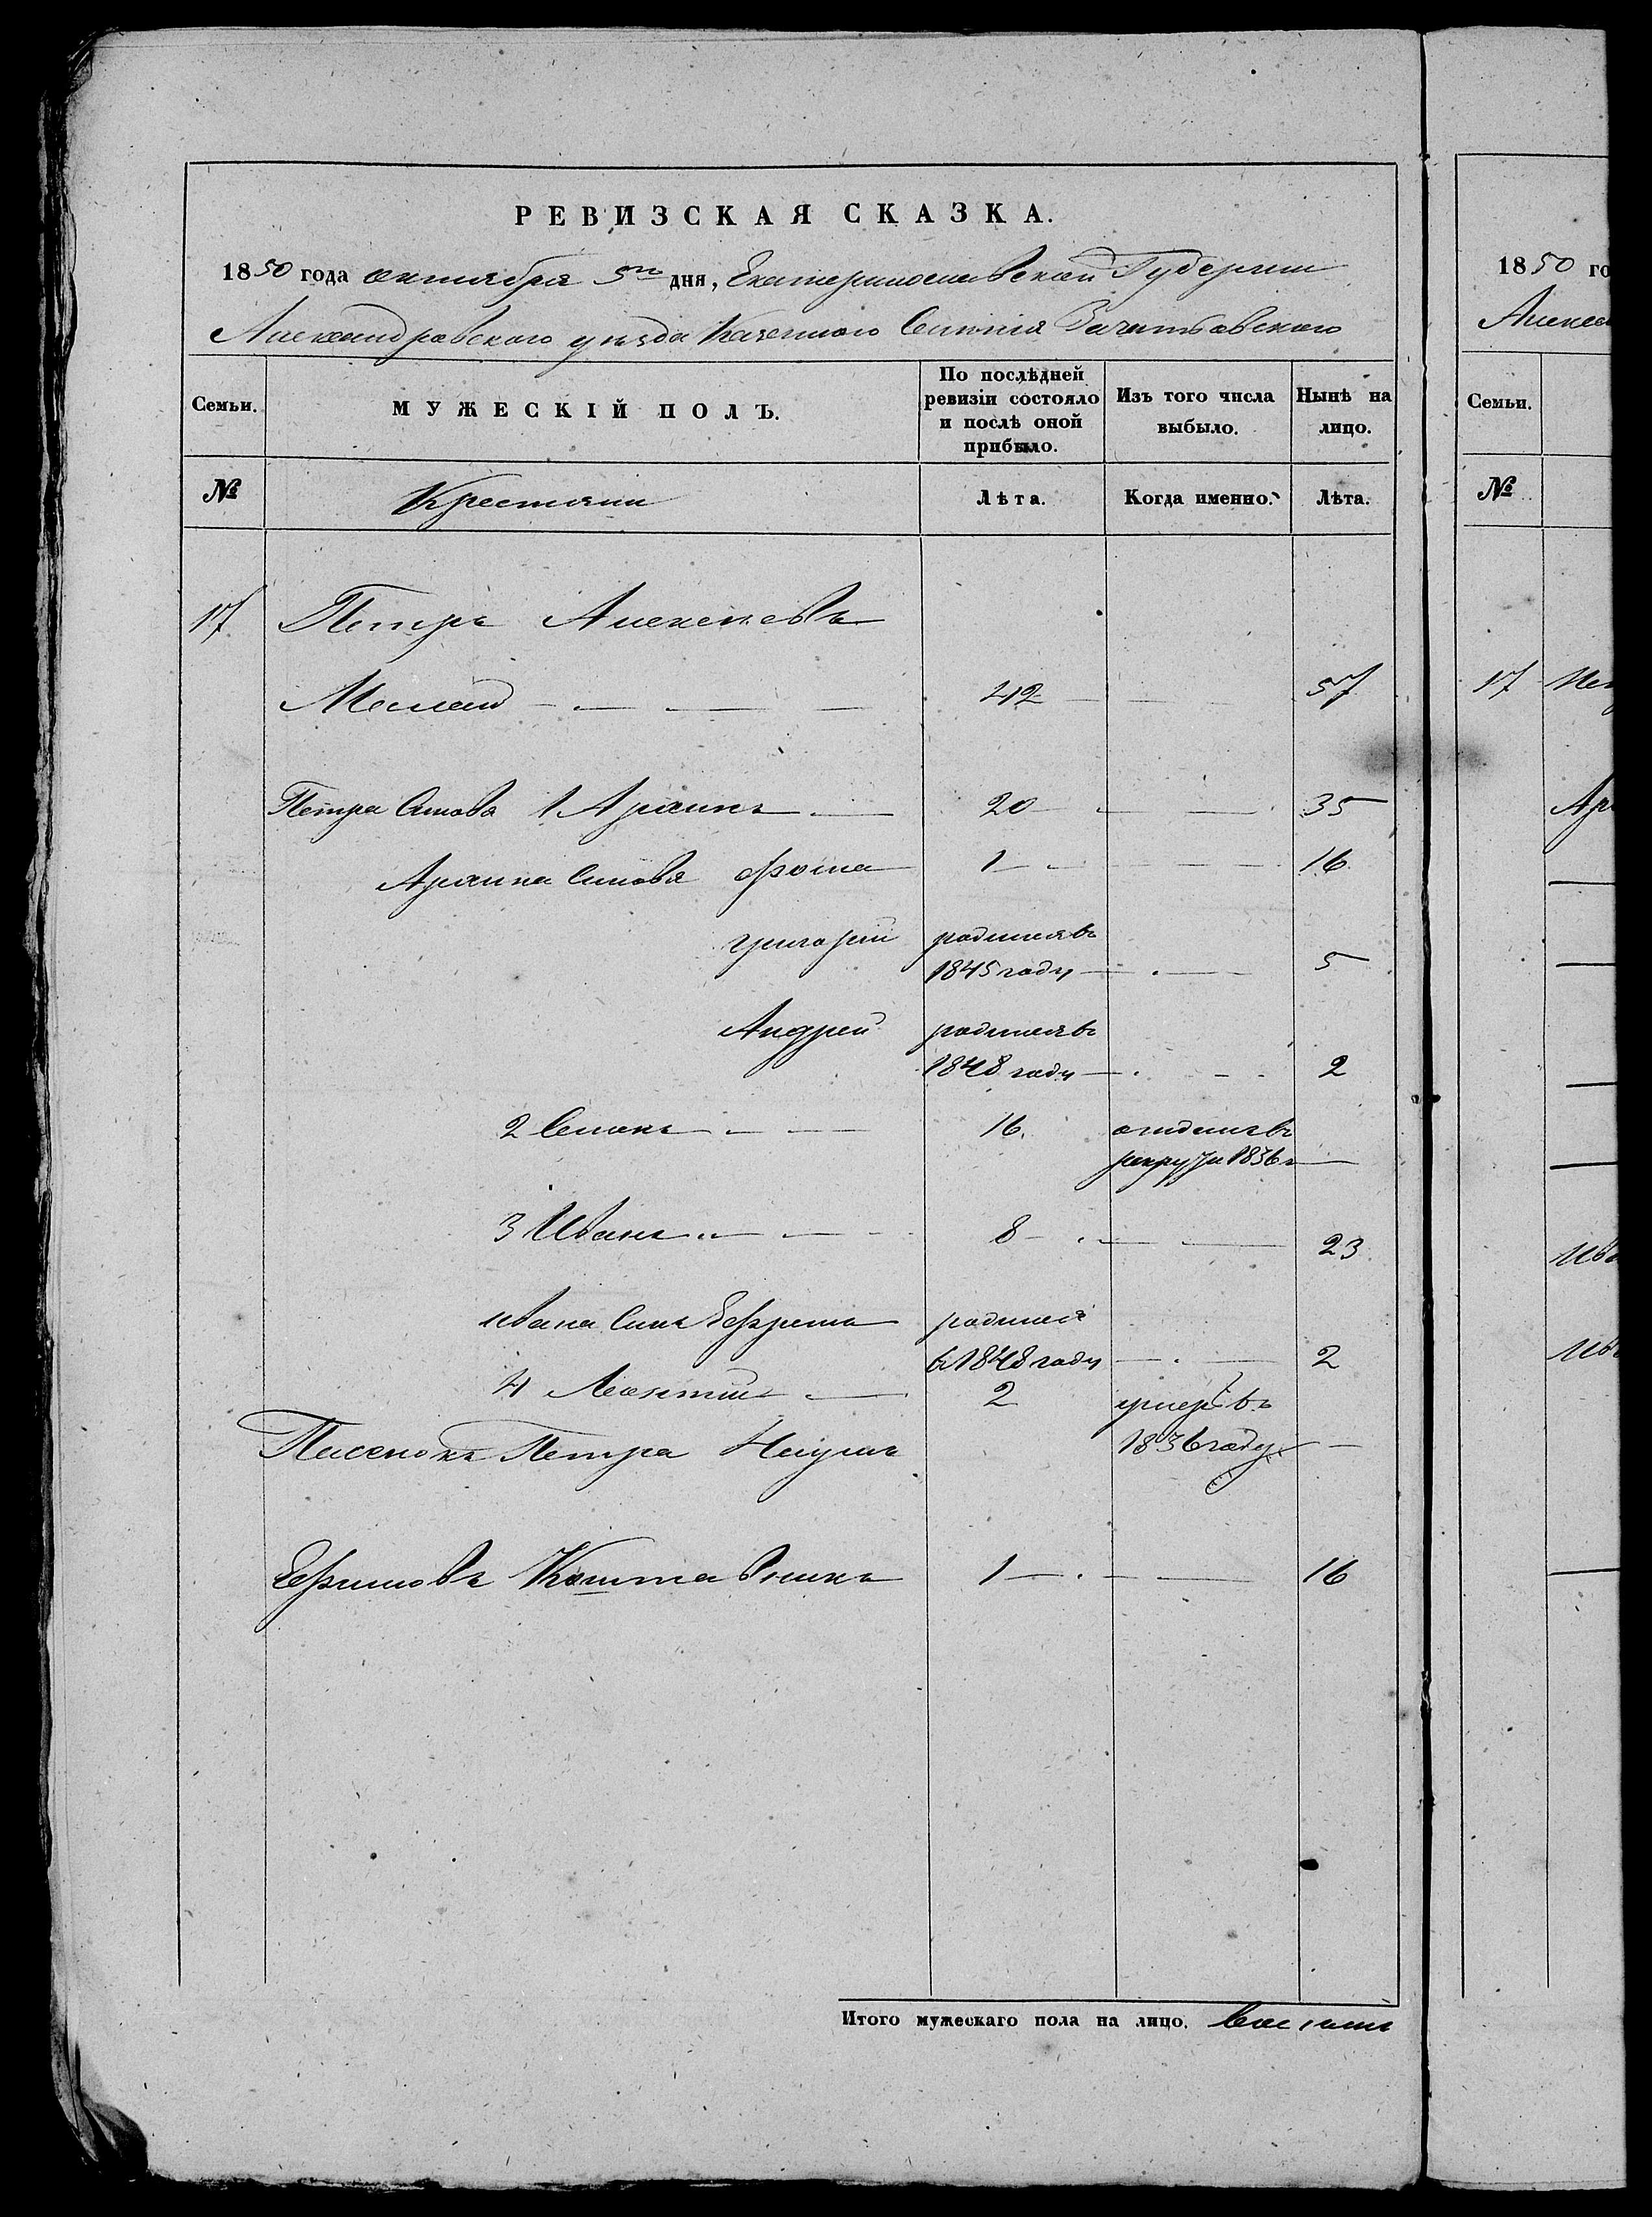 РЕВИЗСКАЯ СКАЗКА.
1850 года октября 5го дня, Екатеринославской Губернии
Александровского уезда Казенного Селения Зачатовского
Семьи.
МУЖЕСКІЙ ПОЛЪ.
По послѣдней ревизіи состояло и послѣ оной прибыло.
Изъ того числа выбыло.
Нынѣ на лицо.
№
Крестяни
Лѣта.
Когда именно.
Лѣта.
17 Петръ Алексеевъ
42 57
Петра Синова 1 20 35
Синовя Фома 1 16
Григорий родился въ
1845 году 5
Андрей родился въ
1848 году 2
2 Семенъ 16. отдан въ
рекруты 1836 г
3 Иванъ 8 23
Ивана Синъ Ефремъ родился
в 1848 году 2
4 Леонтий 2 умеръ въ
Пасенокъ Петра 1836 году
Ефимовъ 1 16
Итого мужескаго пола на лицо.
1850 го
№
17